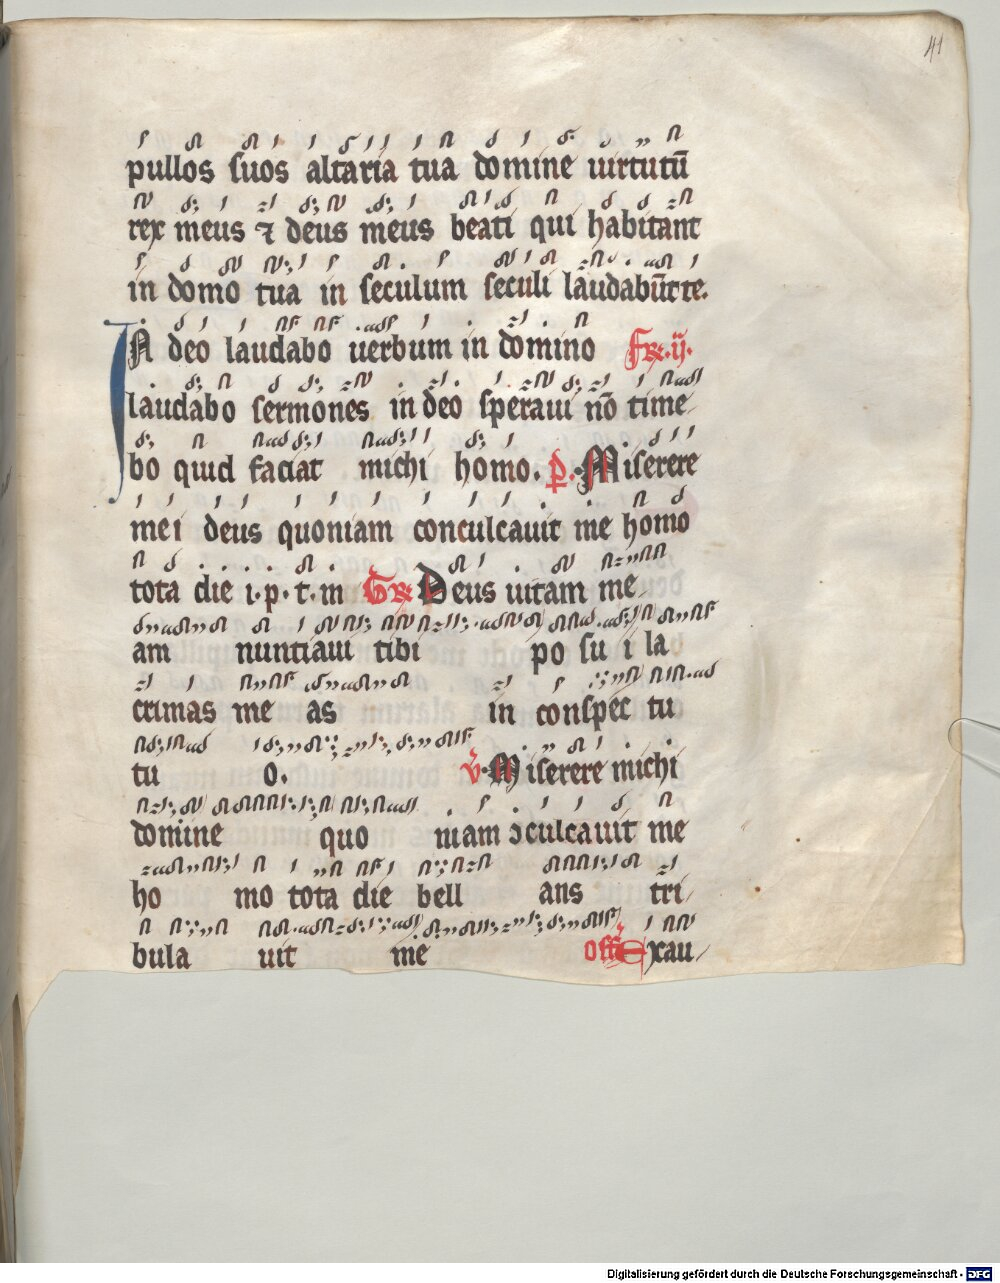 41
pullos suos altaria tua domine uirtutū
rex meus ⁊ deus meus beati qui habitant
in domo tua in seculum seculi laudabūt te.
IN deo laudabo uerbum in domino Fr̃. ij.
laudabo sermones in deo speraui nō time
bo quid faciat michi homo. p̄. Miserere
mei deus quoniam conculcauit me homo
tota die i. p. t. m Gr̃ Deus uitam me
am nuntiaui tibi po su i la
crimas me as in conspec tu
tu o. v̄. Miserere michi
domine quo niam ɔculcauit me
ho mo tota die bell ans tri
bula uit me off̄ Exau
Digitalisierung gefördert durch die Deutsche Forschungsgemeinschaft - DFG